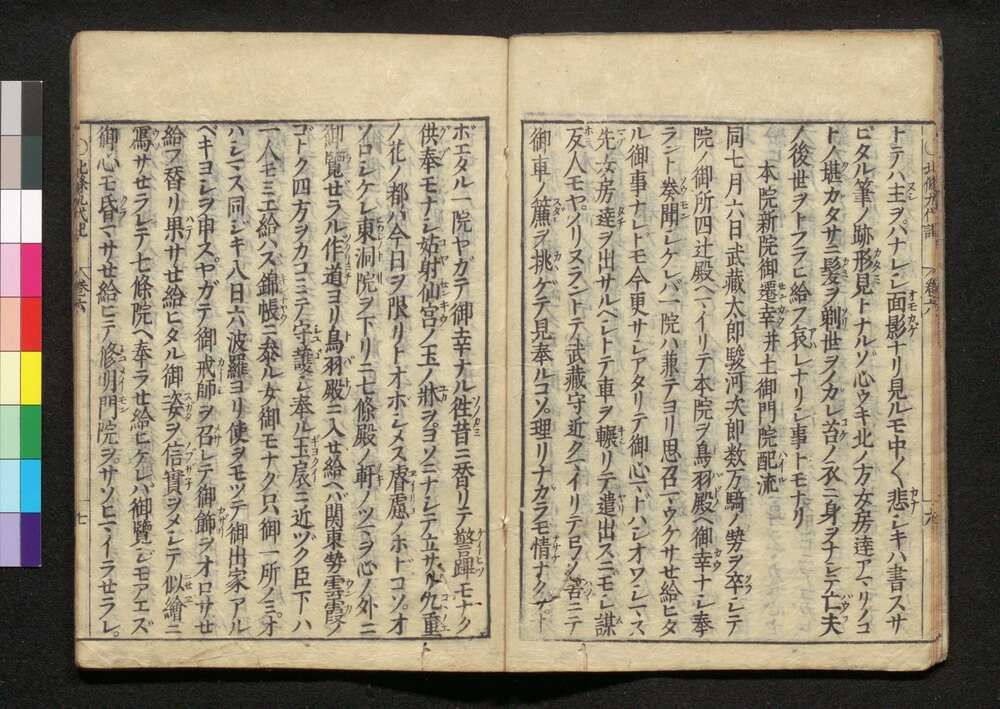 トテハ主ヲハナレシ面影ナリ見ルモ中〳〵悲シキハ書スサ
ビタル筆ノ跡形見トナルゾ心ウキ北ノ方女房達アマリノコ
トノ堪カタサニ髪ヲ剃世ヲノカレ苔ノ衣ニ身ヲナシテ亡夫
ノ後世ヲトフラヒ給フ哀レナリシ事トモナリ
本院新院御遷幸并土御門院配流
同七月六日武藏太郎駿河次郎数万騎ノ勢ヲ卒シテ
院ノ御所四辻殿ヘマイリテ本院ヲ鳥羽殿ヘ御幸ナシ奉
ラント奏聞シケレバ一院ハ兼テヨリ思召マウケサせ給ヒタ
ル御事ナレドモ今更サシアタリテ御心マドハシオワシマス
先女房達ヲ出サルベシトテ車ヲ輾リテ遣出スニモシ謀
反人モヤノリヌラントテ武藏守近クマイリテ弓ノ筈ニテ
御車ノ簾ヲ挑ゲテ見奉ルコソ理リナガラモ情ナク
ボエタル一院ヤガテ御幸ナル徃昔ニ替リテ警蹕モナク
供奉モナシ姑射仙宮ノ玉ノ牀ヲヨソニナシテ立サル九重
ノ花ノ都ハ今日ヲ限リトオボシメス睿慮ノホドコソオ
ソロシケレ東洞院ヲ下リニ七條殿ノ軒ノツマヲ心ノ外ニ
御覽せラル作道ヨリ鳥羽殿ニ入せ給ヘバ関東勢雲霞ノ
ゴトク四方ヲカコミテ守護シ奉ル玉扆ニ近ヅク臣下ハ
一人モミエ給ハズ錦帳ニ參ル女御モナク只御一所ノミオ
ハシマス同シキ八日六波羅ヨリ使ヲモツテ御出家アル
ベキヨシヲ申スヤガテ御戒師ヲ召レテ御飾ヲオロサせ
給フ替リ果サせ給ヒタル御姿ヲ信實ヲメシテ似繪ニ
寫サせラレテ七條院ヘ奉ラせ給ヒケレバ御覽シモアエズ
御心モ昏マサせ給ヒテ修明門院ヲサソヒマイラせラレ